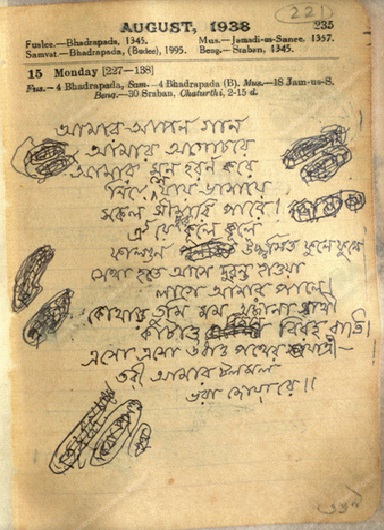 (221)
AUGUST, 1938 235
Fuslee.—Bhadrapada, 1345. Mus.—Jamadi-us-Sanee. 1357.
Samvat.—Bhadrapada, (Budee), 1995. Beng.—Sraban, 1345.
15 Monday [227—138]
Fus.—4 Bhadrapada, Sam.—4 Bhadrapada (B). Mus.—18 Jam-us-S.
Beng.—30 Sraban, Chaturthi, 2-15 d.
আমার আপন গান
আমার অগোচরে
আমার মন হরণ করে
নিয়ে সে যায় ভাসায়ে
সকল সীমারি পারে।
ঐ যে কূলে কূলে
ফাল্গুন উচ্ছ্বসিত ফুলে ফুলে
সেথা হতে আসে দুরন্ত হাওয়া
লাগে আমার পালে।
কোথায় তুমি মম অজানা সাথী
কাটাও বিরহ রাতি।
এসো এসো উধাও পথের যাত্রী—
তরী আমার টলমল
ভরা জোয়ারে॥